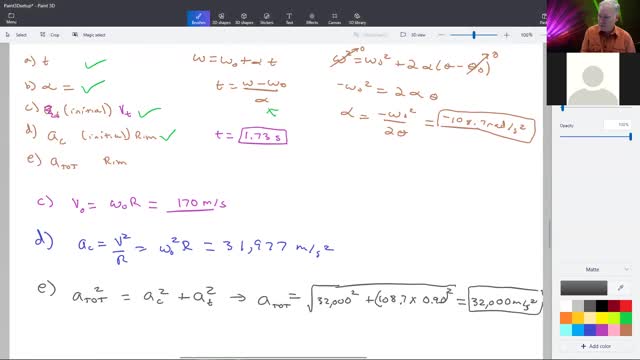 Paint3Dsetup* - Paint 3D
Menu
Brushes
2D shapes
3D shapes
Text
Effects
Canvas
3D library
Paste
Undo
Redo
Select
Crop
Magic select
3D view
a) t ✓
b) α = ✓
c) (initial) Vt ✓
d) ac (initial) Rim ✓
e) aTOT Rim
ω = ω₀ + αt
t = (ω − ω₀)/α
t = 1.73 s
ω² = ω₀² + 2α(θ − θ₀)
−ω₀² = 2αθ
α = −ω₀²/2θ = −108.7 rad/s²
c) V₀ = ω₀R = 170 m/s
d) ac = V²/R = ω₀²R = 31,977 m/s²
e) aTOT² = ac² + at² → aTOT = √(32,000² + (108.7 × 0.90)²) = 32,000 m/s²
Opacity
100%
Matte
Add color